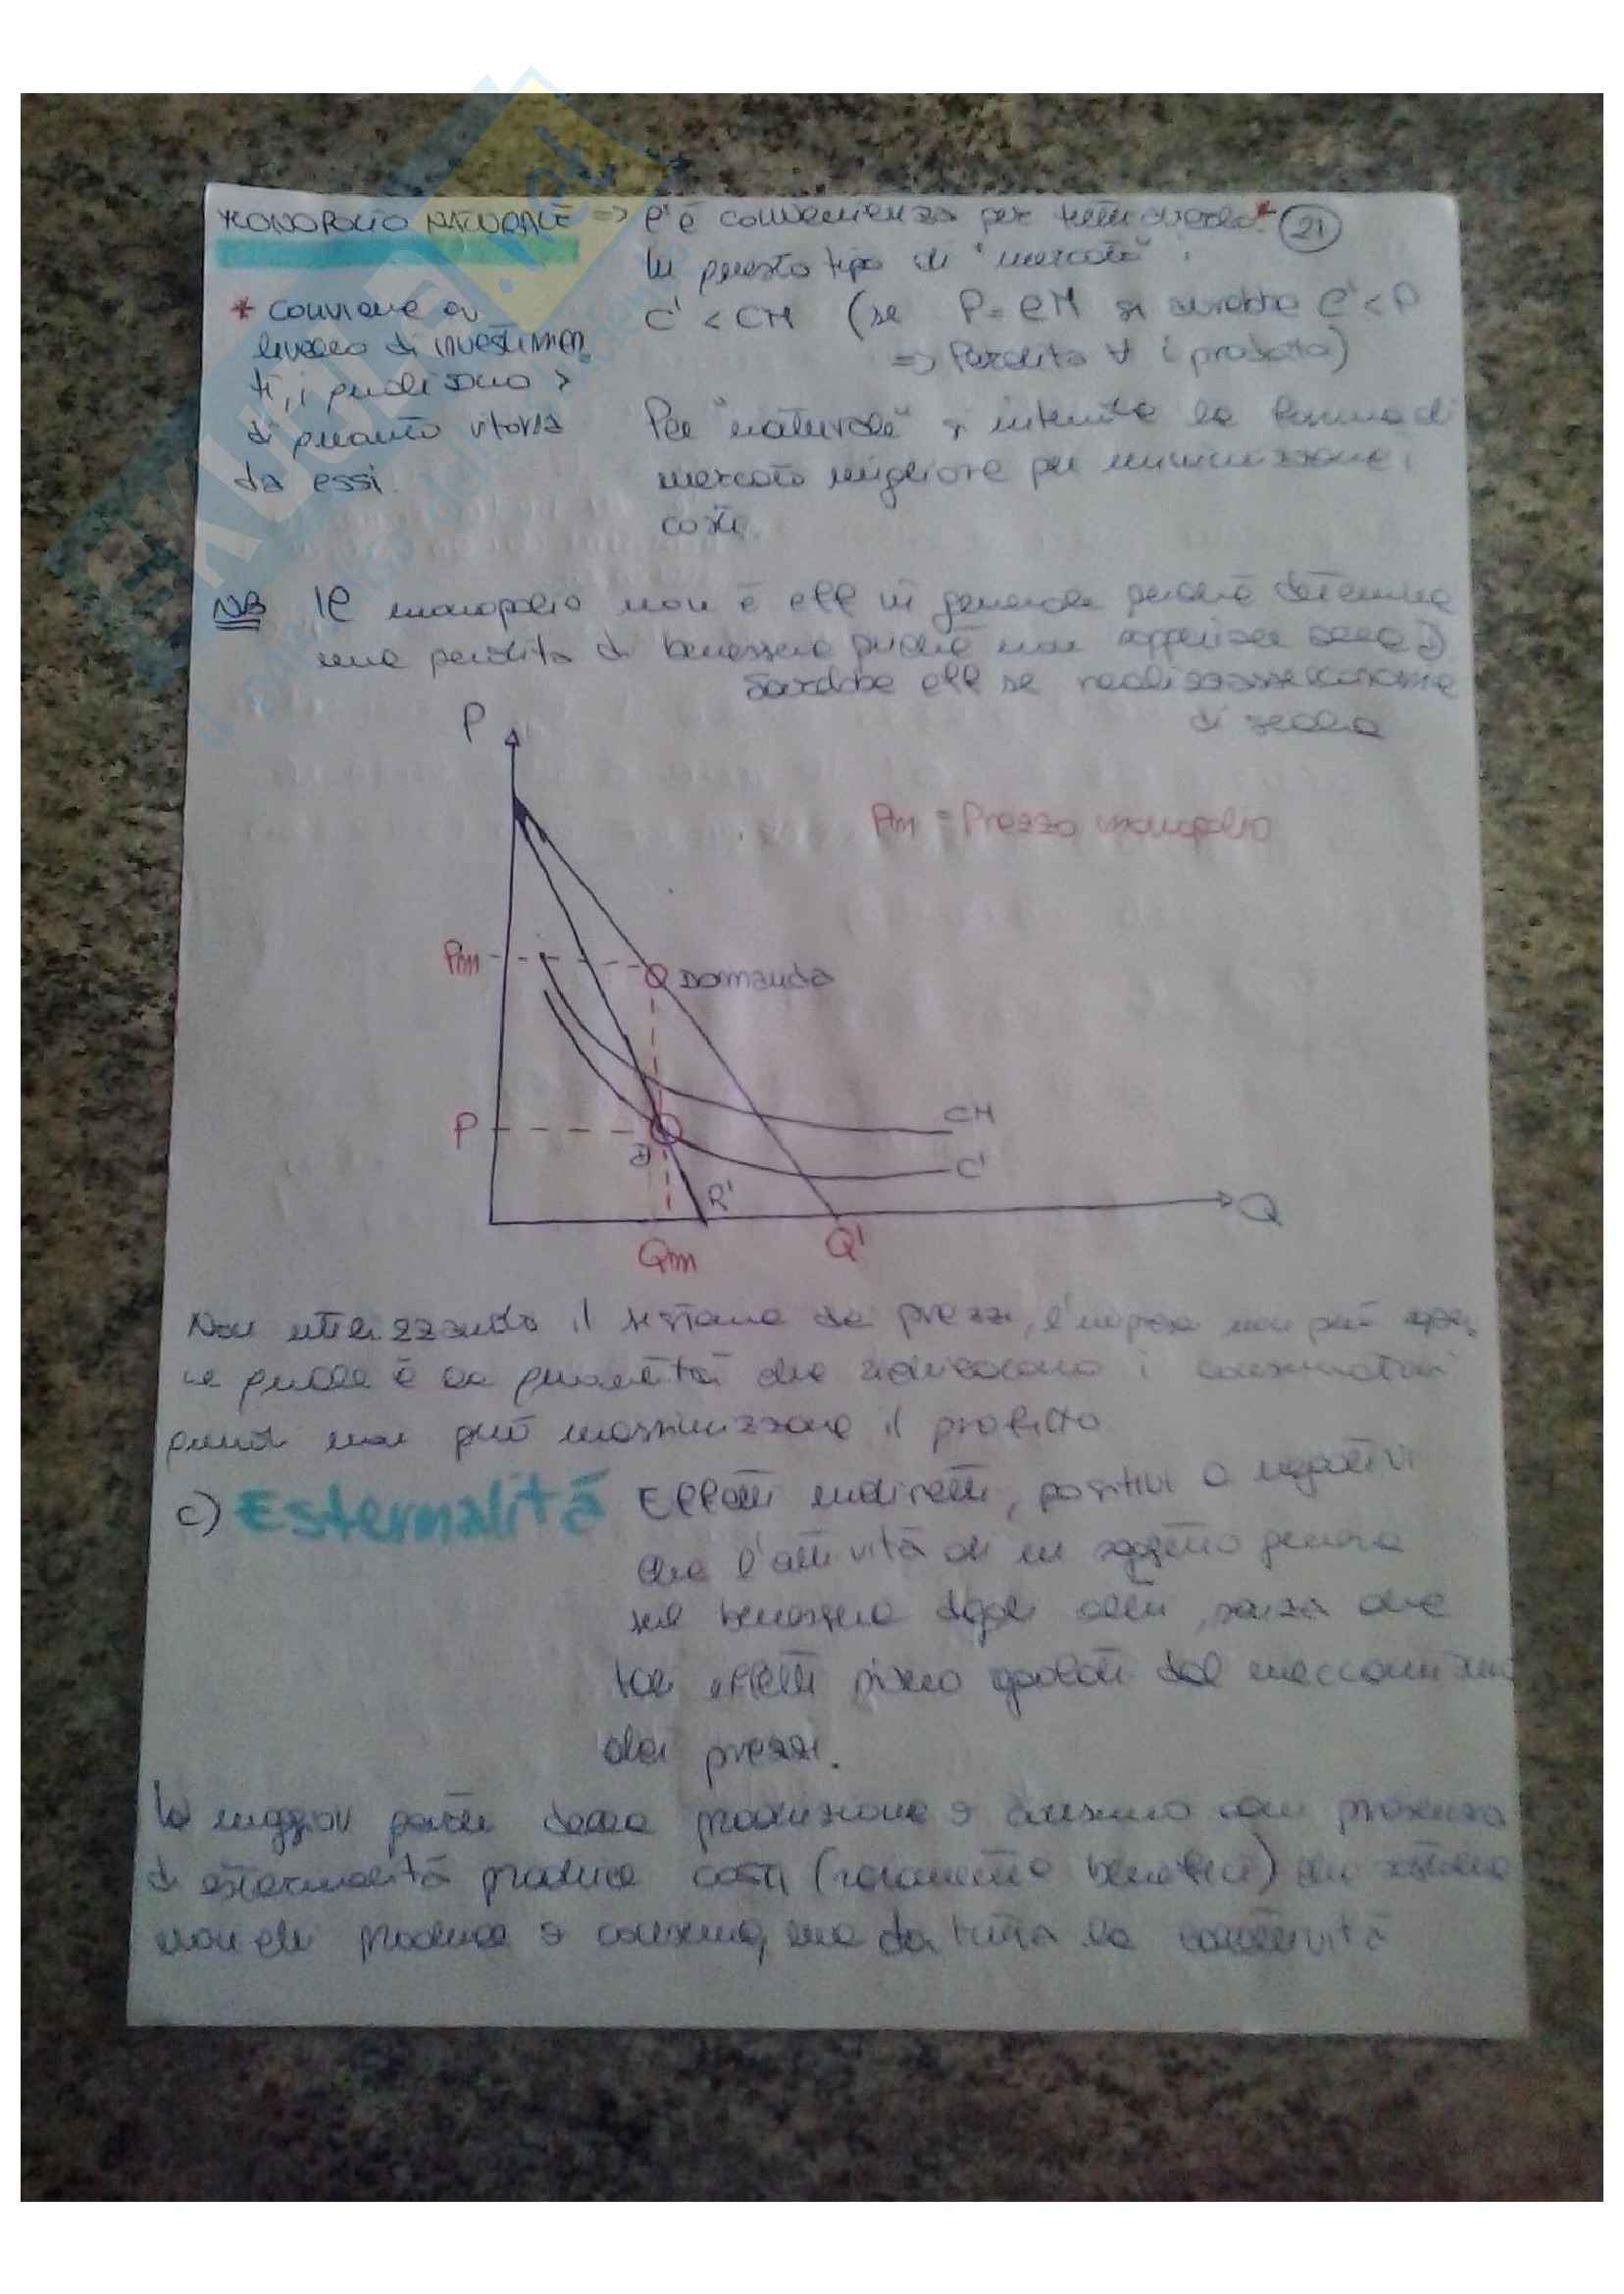 MONOPOLIO NATURALE => C'è convenienza per * 21
In questo tipo di "mercato"
* conviene a
livello di investimen
ti, i quali sono >
di quanto ritorna
da essi.
C' < CM (se P = CM si avrebbe C' < P
=> Perdita ∀ i prodotta)
Per "naturale" si intende la forma di
mercato migliore per minimizzare i
costi.
NB Il monopolio non è eff in generale perché determina
una perdita di benessere perché non
Sarebbe eff se realizzasse economie
di scala
P
Pm = Prezzo monopolio
Pm
Domanda
CM
P
C'
R'
Q
Qm
Q'
Non utilizzando il sistema dei prezzi, l'impresa non può
re quale è la quantità che i consumatori
quindi non può massimizzare il profitto
c) Esternalità Effetti indiretti, positivi o negativi
che l'attività di un soggetto genera
sul benessere degli altri, senza che
tali effetti siano dal meccanismo
dei prezzi.
La maggior parte della produzione e consumo con presenza
di esternalità produce costi (raramente benefici)
non chi produce e consuma, ma da tutta la collettività